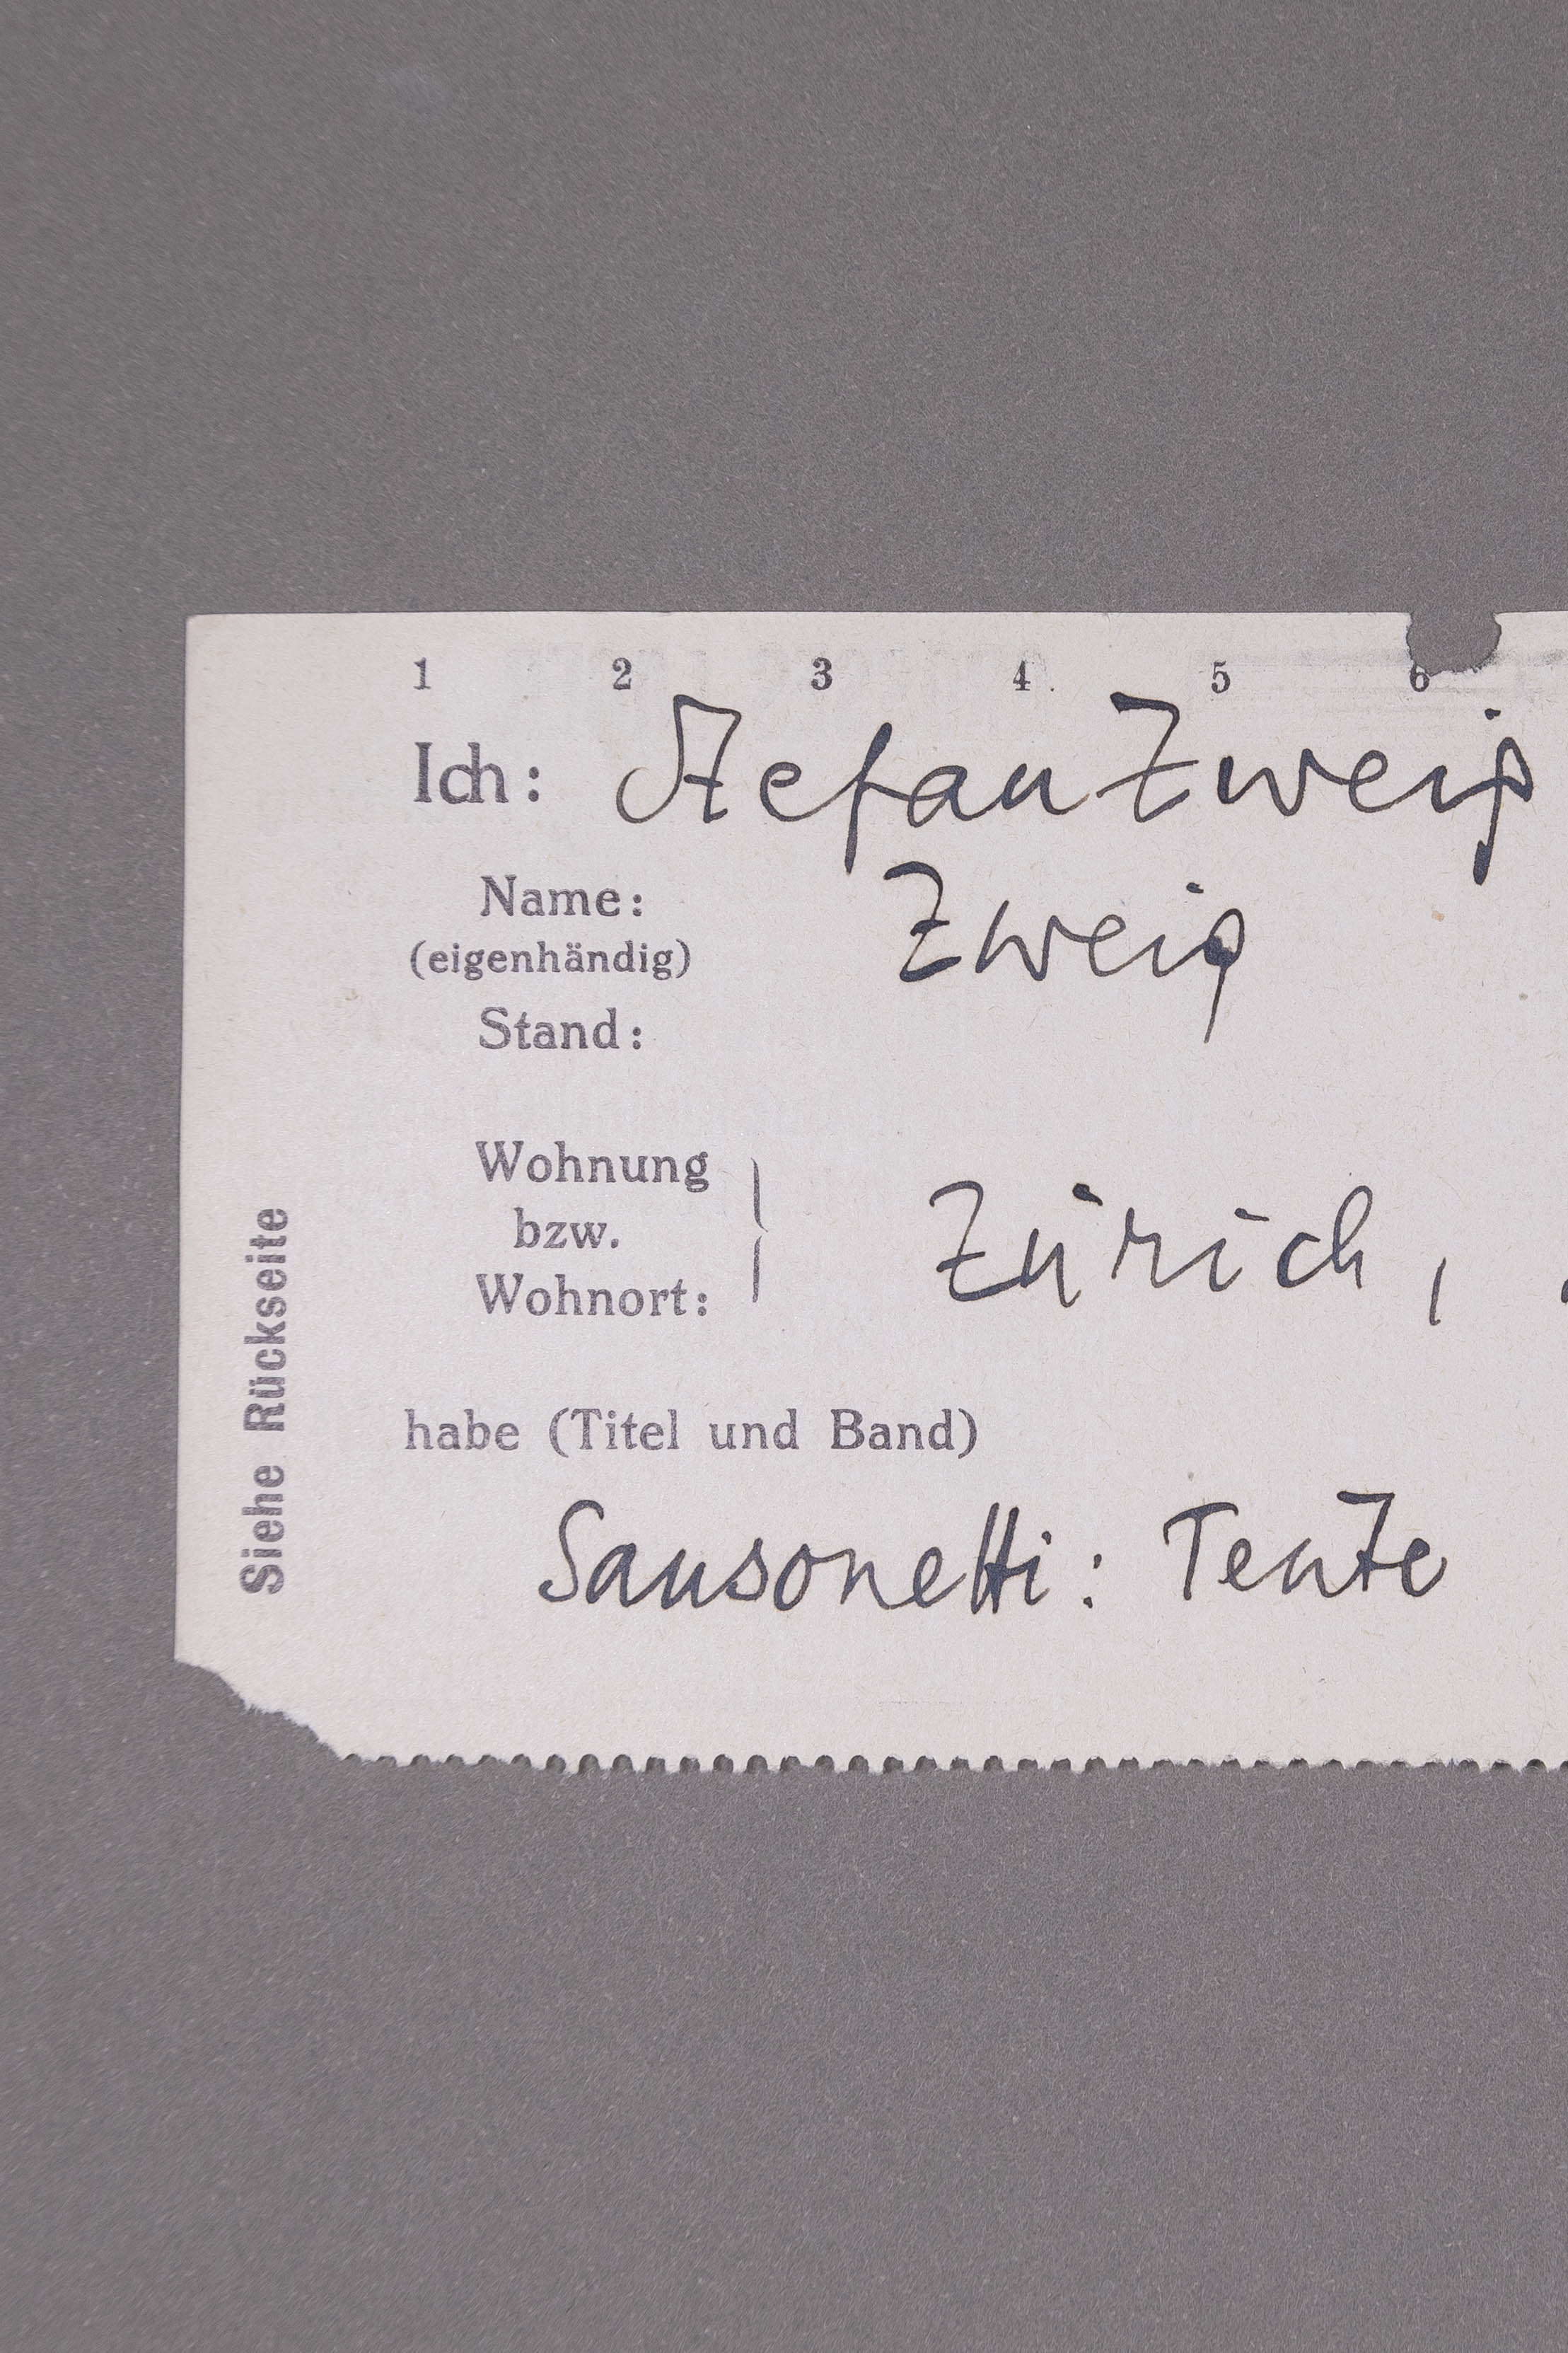 1 2 3 4 5 6
Ich: Stefan Zweig
Name: Zweig
(eigenhändig)
Stand:
Wohnung
bzw.
Wohnort: Zürich,
habe (Titel und Band)
Sansonetti: Tente
Siehe Rückseite